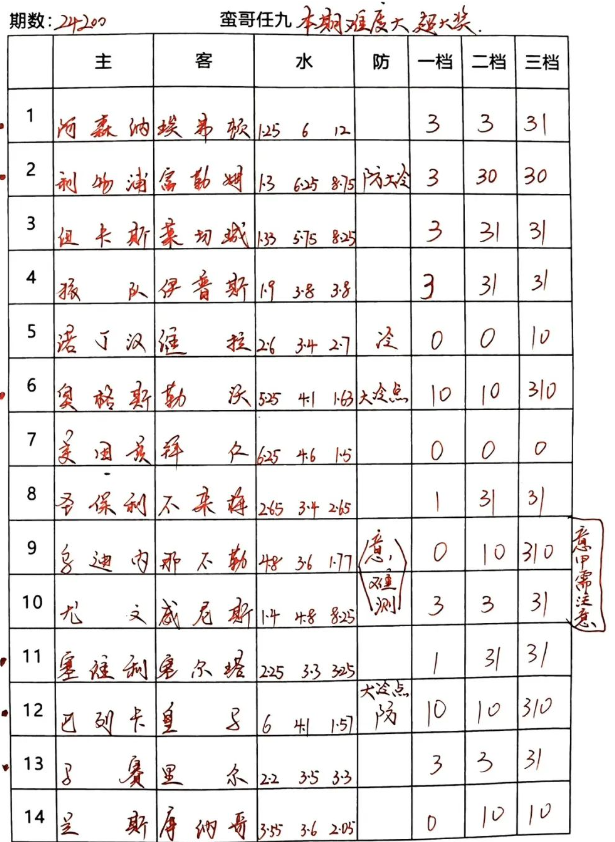 期数:24200 蛮哥任九 本期难度大 超大奖.
主 客 水 防 一档 二档 三档
1 阿森纳 埃弗顿 1.25 6 12 3 3 31
2 利物浦 富勒姆 1.3 6.25 8.75 防大冷 3 30 30
3 纽卡斯 莱切城 1.33 5.75 8.25 3 31 31
4 狼队 伊普斯 1.9 3.8 3.8 3 31 31
5 诺丁汉 维拉 2.6 3.4 2.7 冷 0 0 10
6 奥格斯 勒沃 5.25 4.1 1.63 大冷点 10 10 310
7 美因茨 拜仁 6.25 4.6 1.5 0 0 0
8 圣保利 不来梅 2.65 3.4 2.65 1 31 31
9 乌迪内 那不勒 4.8 3.6 1.77 0 10 310
意,难测
意甲需注意
10 尤文 威尼斯 1.4 4.8 8.25 3 3 31
11 塞维利 塞尔塔 2.25 3.3 3.25 1 31 31
12 巴列卡 皇马 6 4.1 1.57 大冷点 防 10 10 310
13 马赛 里尔 2.2 3.5 3.3 3 3 31
14 兰斯 摩纳哥 3.55 3.6 2.05 0 10 10